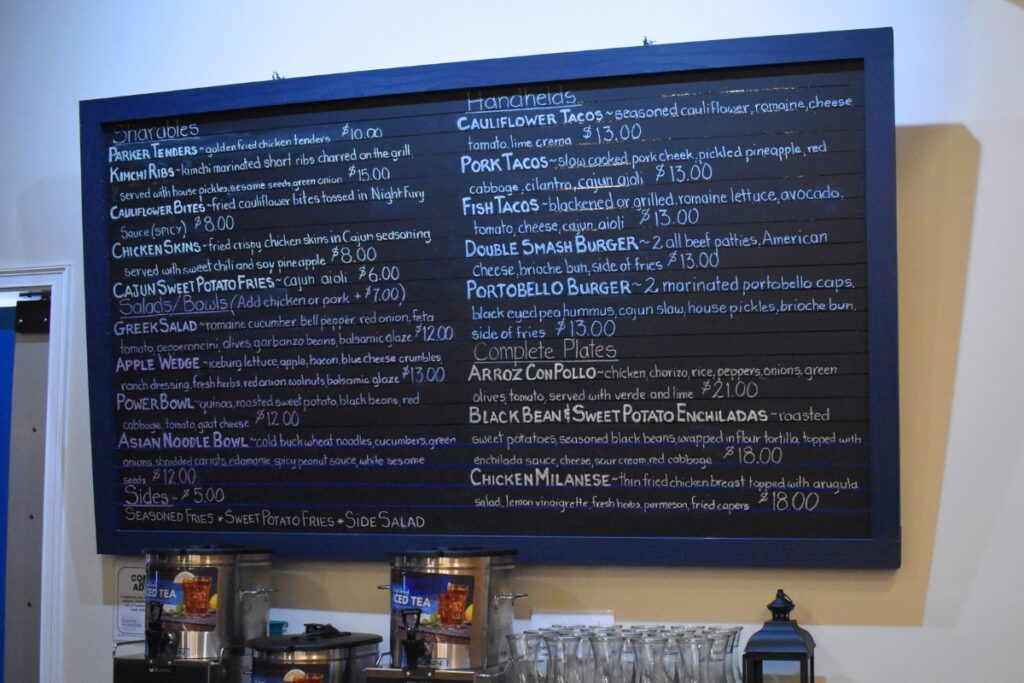 Sharables
PARKER TENDERS ~ golden fried chicken tenders $10.00
KIMCHI RIBS ~ kimchi marinated short ribs charred on the grill
served with house pickles, sesame seeds, green onion $15.00
CAULIFLOWER BITES ~ fried cauliflower bites tossed in Night Fury
Sauce (spicy) $8.00
CHICKEN SKINS ~ fried crispy chicken skins in Cajun seasoning
served with sweet chili and soy pineapple $8.00
CAJUN SWEET POTATO FRIES ~ cajun aioli $6.00
Salads/Bowls (Add chicken or pork + $7.00)
GREEK SALAD ~ romaine cucumber, bell pepper, red onion, feta
tomato, pepperoncini, olives, garbanzo beans, balsamic glaze $12.00
APPLE WEDGE ~ iceburg lettuce, apple, bacon, blue cheese crumbles,
ranch dressing, fresh herbs, red onion, walnuts, balsamic glaze $13.00
POWER BOWL ~ quinoa, roasted sweet potato, black beans, red
cabbage, tomato, goat cheese $12.00
ASIAN NOODLE BOWL ~ cold buckwheat noodles, cucumbers, green
onions, shredded carrots, edamame, spicy peanut sauce, white sesame
seeds $12.00
Sides ~ $5.00
SEASONED FRIES * SWEET POTATO FRIES * SIDE SALAD
Handhelds
CAULIFLOWER TACOS ~ seasoned cauliflower, romaine, cheese
tomato, lime crema $13.00
PORK TACOS ~ slow cooked pork cheek, pickled pineapple, red
cabbage, cilantro, cajun aioli $13.00
FISH TACOS ~ blackened or grilled, romaine lettuce, avocado,
tomato, cheese, cajun aioli $13.00
DOUBLE SMASH BURGER ~ 2 all beef patties, American
cheese, brioche bun, side of fries $13.00
PORTOBELLO BURGER ~ 2 marinated portobello caps,
black eyed pea hummus, cajun slaw, house pickles, brioche bun,
side of fries $13.00
Complete Plates
ARROZ CON POLLO ~ chicken, chorizo, rice, peppers, onions, green
olives, tomato, served with verde and lime $21.00
BLACK BEAN & SWEET POTATO ENCHILADAS ~ roasted
sweet potatoes, seasoned black beans, wrapped in flour tortilla, topped with
enchilada sauce, cheese, sour cream, red cabbage $18.00
CHICKEN MILANESE ~ thin fried chicken breast topped with arugula
salad, lemon vinaigrette, fresh herbs, parmesan, fried capers $18.00
ICED TEA
ICED TEA